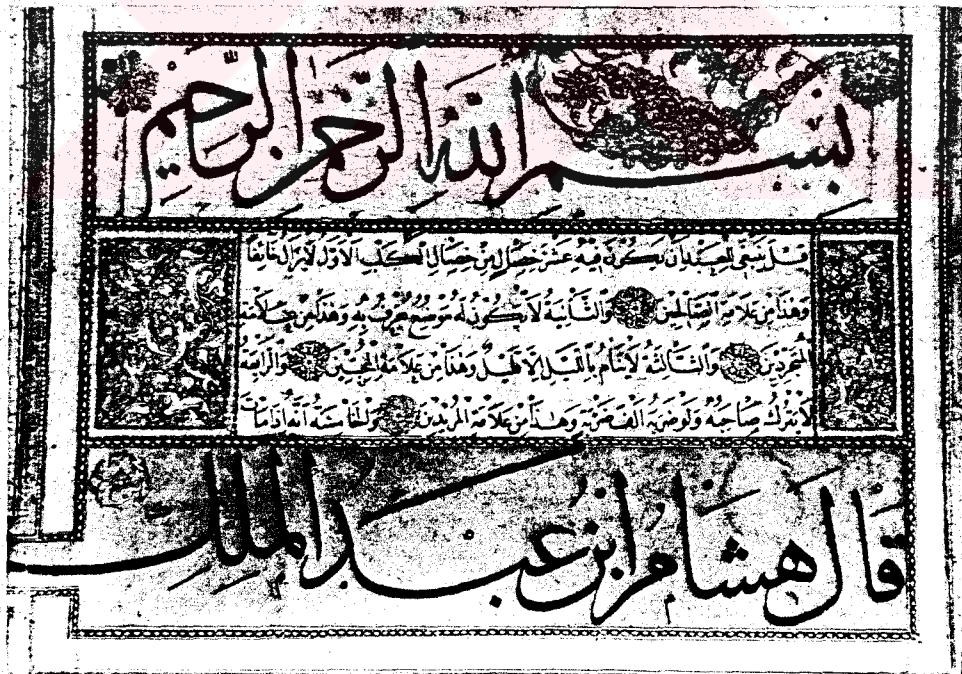 بسم الله الرحمن الرحيم
قيل ينبغي للعبد ان يكون فيه عشر خصال من خصال الكلب الاول لا يزال جائعا
وهذا من علامة الصالحين والثانية لا يكون له موضع يعرف به وهذا من علامة
المتجردين والثالثة لا ينام بالليل الا قليل وهذا من علامة المحبين والرابعة
لا يترك صاحبه ولو ضربه الف ضربة وهذا من علامة المريدين والخامسة
قال هشام ابن عبد الملك